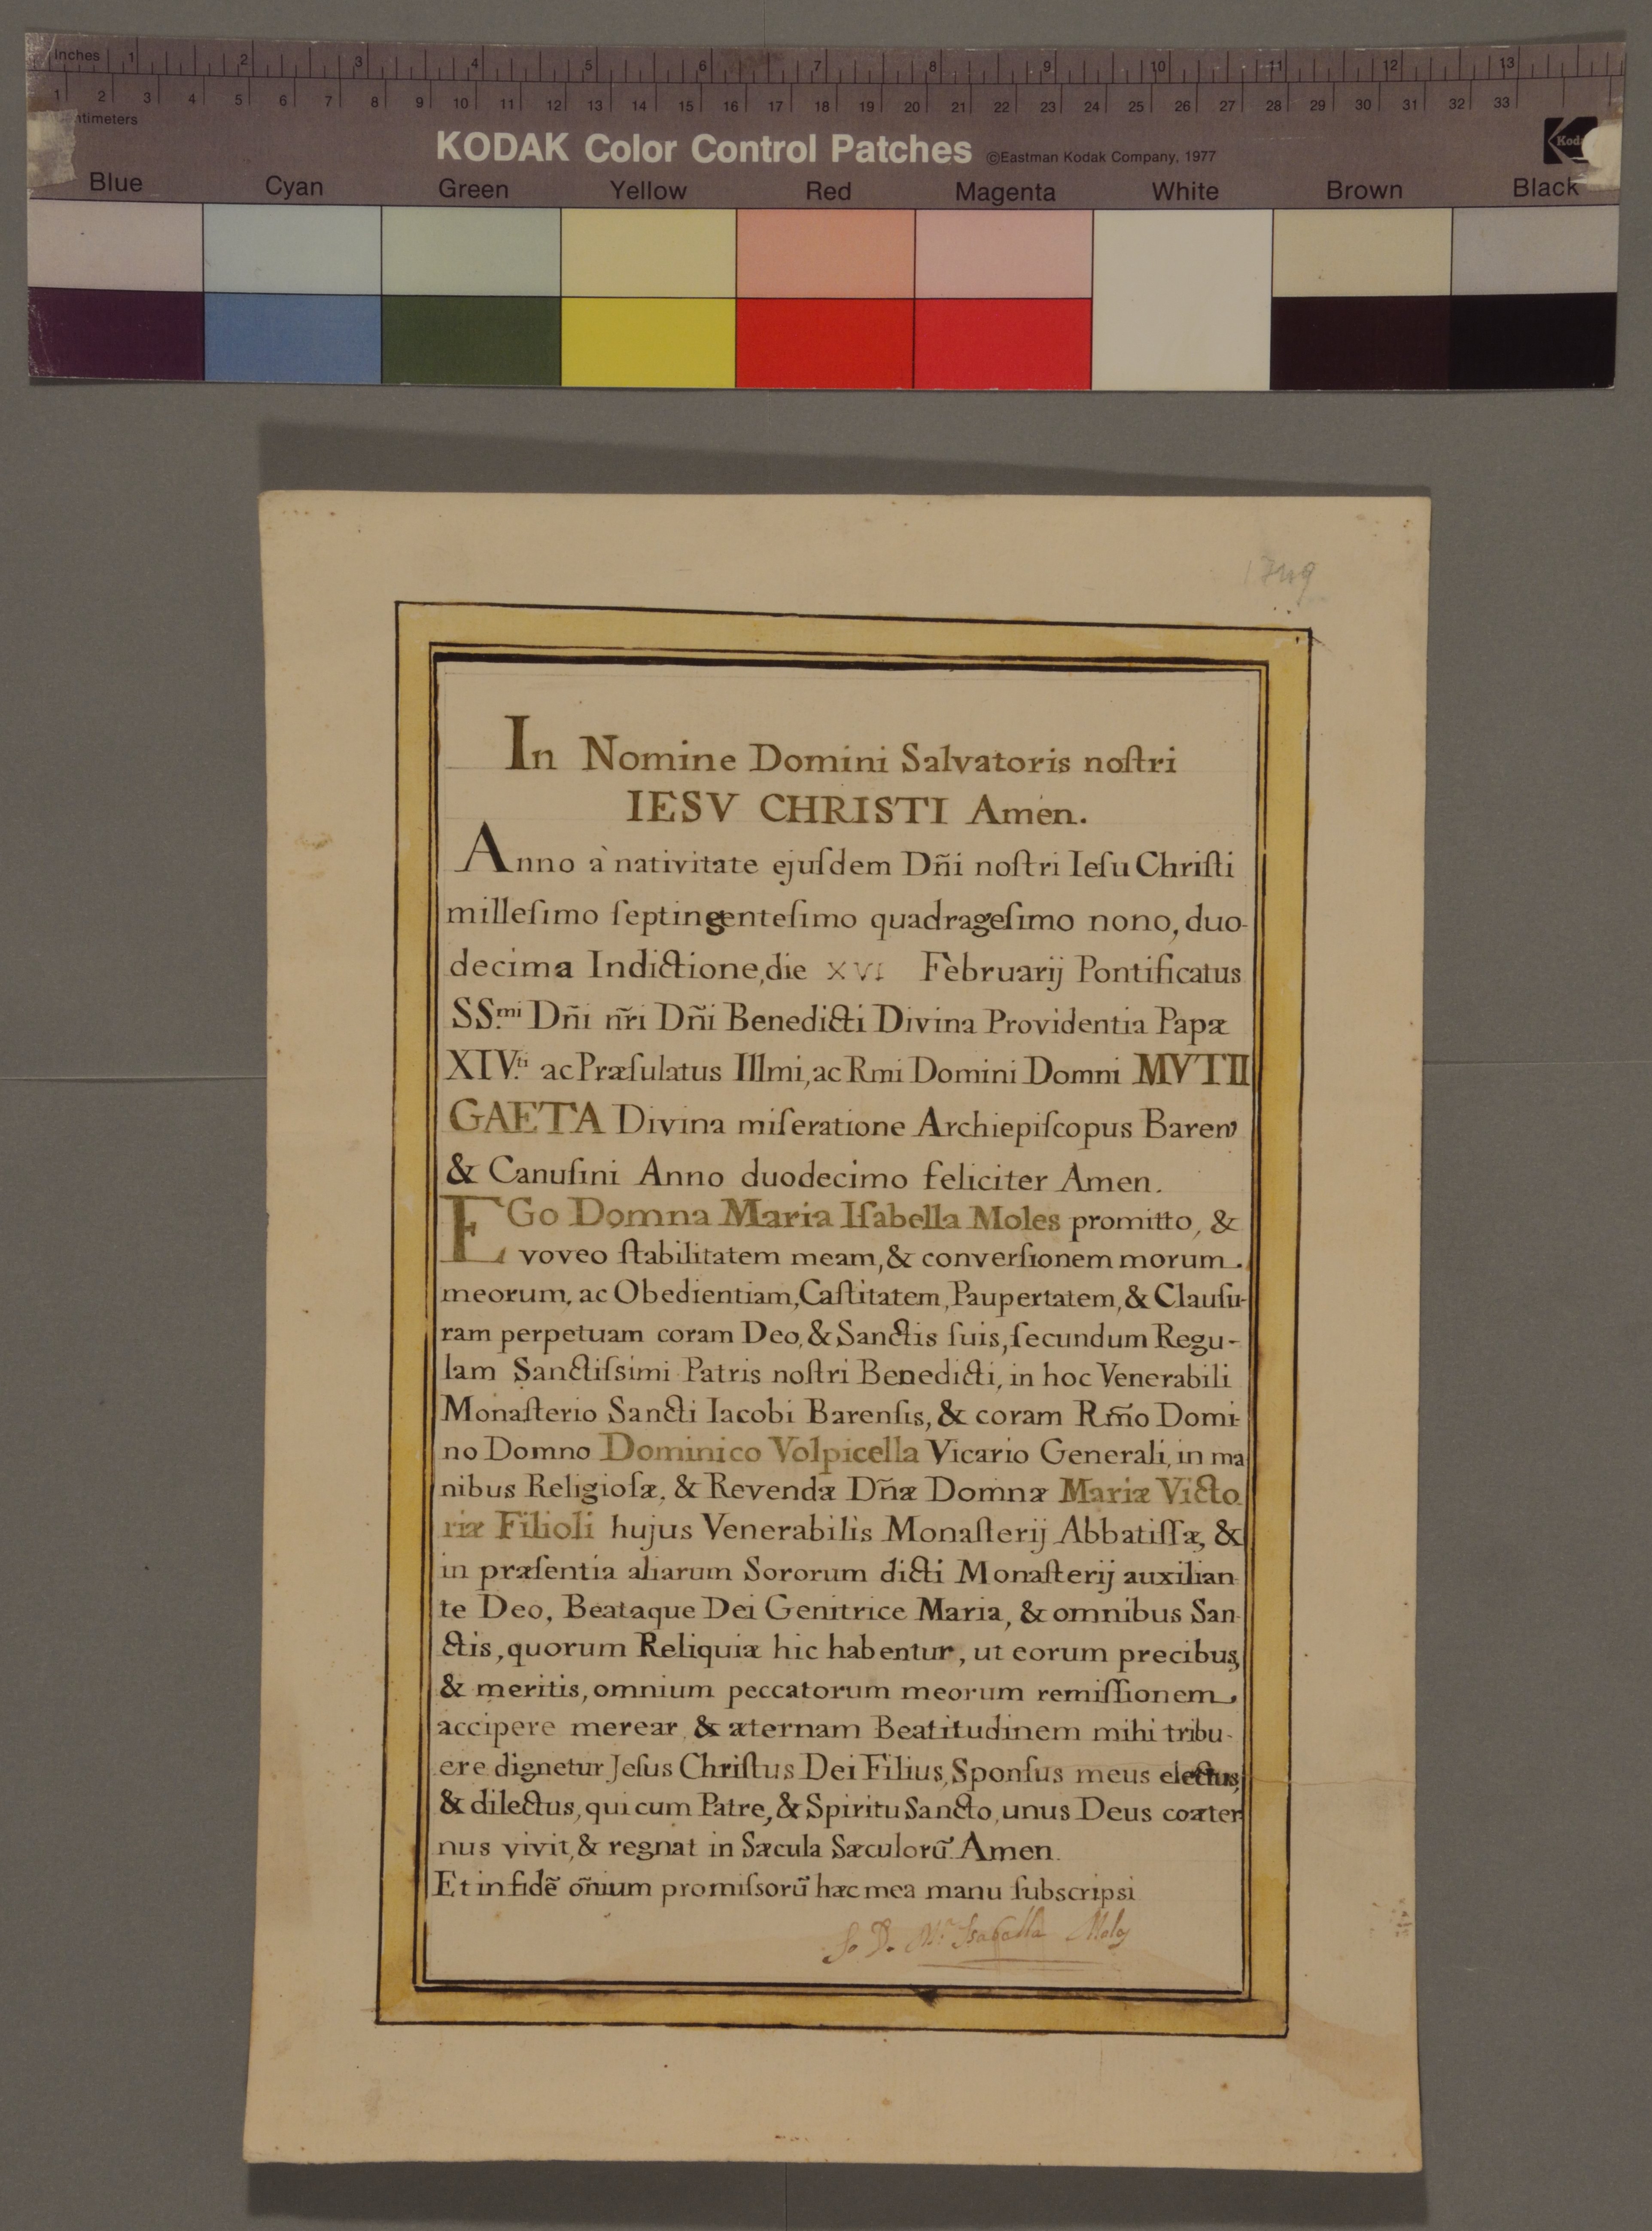 Inches 1 2 3 4 5 6 7 8 9 10 11 12 13
1 2 3 4 5 6 7 8 9 10 11 12 13 14 15 16 17 18 19 20 21 22 23 24 25 26 27 28 29 30 31 32 33
KODAK Color Control Patches ©Eastman Kodak Company, 1977
Blue Cyan Green Yellow Red Magenta White Brown Black
1749
In Nomine Domini Salvatoris noſtri
IESV CHRISTI Amen.
Anno à nativitate ejuſdem Dñi noſtri Ieſu Chriſti
milleſimo ſeptingenteſimo quadrageſimo nono, duo-
decima Indictione, die XVI Februarij Pontificatus
SS.mi Dñi ñri Dñi Benedicti Divina Providentia Papæ
XIV.ti ac Præſulatus Illmi, ac Rmi Domini Domni MVTII
GAETA Divina miſeratione Archiepiſcopus Baren
& Canuſini Anno duodecimo feliciter Amen.
EGo Domna Maria Iſabella Moles promitto, &
voveo ſtabilitatem meam, & converſionem morum
meorum, ac Obedientiam, Caſtitatem, Paupertatem, & Clauſu-
ram perpetuam coram Deo, & Sanctis ſuis, ſecundum Regu-
lam Sanctiſsimi Patris noſtri Benedicti, in hoc Venerabili
Monaſterio Sancti Iacobi Barenſis, & coram Rm̃o Domi-
no Domno Dominico Volpicella Vicario Generali, in ma
nibus Religioſæ, & Revendæ Dñæ Domnæ Mariæ Victo
riæ Filioli hujus Venerabilis Monaſterij Abbatiſſæ, &
in præſentia aliarum Sororum dicti Monaſterij auxilian-
te Deo, Beataque Dei Genitrice Maria, & omnibus San-
ctis, quorum Reliquiæ hic habentur, ut eorum precibus,
& meritis, omnium peccatorum meorum remiſſionem
accipere merear, & æternam Beatitudinem mihi tribu-
ere dignetur Jeſus Chriſtus Dei Filius, Sponſus meus electus,
& dilectus, qui cum Patre, & Spiritu Sancto, unus Deus coæter
nus vivit, & regnat in Sæcula Sæculorũ. Amen.
Et in fidẽ õnium promiſsorũ hæc mea manu ſubscripsi
Io D. M.a Isabella Moles